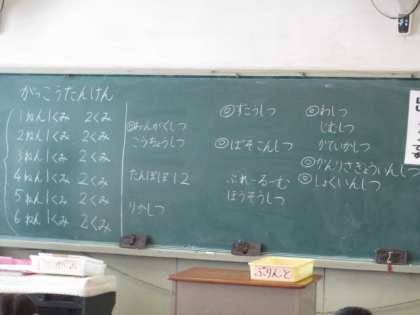 がっこうたんけん
1ねん1くみ 2くみ
2ねん1くみ 2くみ
3ねん1くみ 2くみ
4ねん1くみ 2くみ
5ねん1くみ 2くみ
6ねん1くみ 2くみ
◎おんがくしつ
こうちょうしつ
たんぽぽ12
りかしつ
◎ずこうしつ
◎ぱそこんしつ
ぷれーるーむ
ほうそうしつ
◎わしつ
じむしつ
かていかしつ
◎かんりさぎょういんしつ
◎しょくいんしつ
ぷりんと